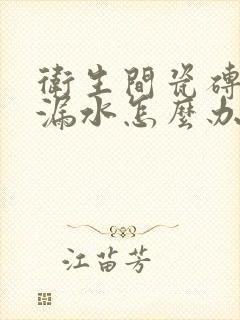 衛生間瓷磚
漏水怎麼办
江苗芳